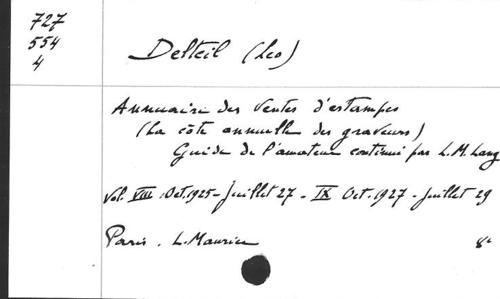 727
554
4
Delteil (Leo)
Annuaire des Ventes d'estampes
(La côte annuelle des graveurs)
Guide de l'amateur continué par L.M. Lang
Vol. VIII Oct. 1925 - Juillet 27 - IX Oct. 1927 - Juillet 29
Paris. L. Maurice
8°